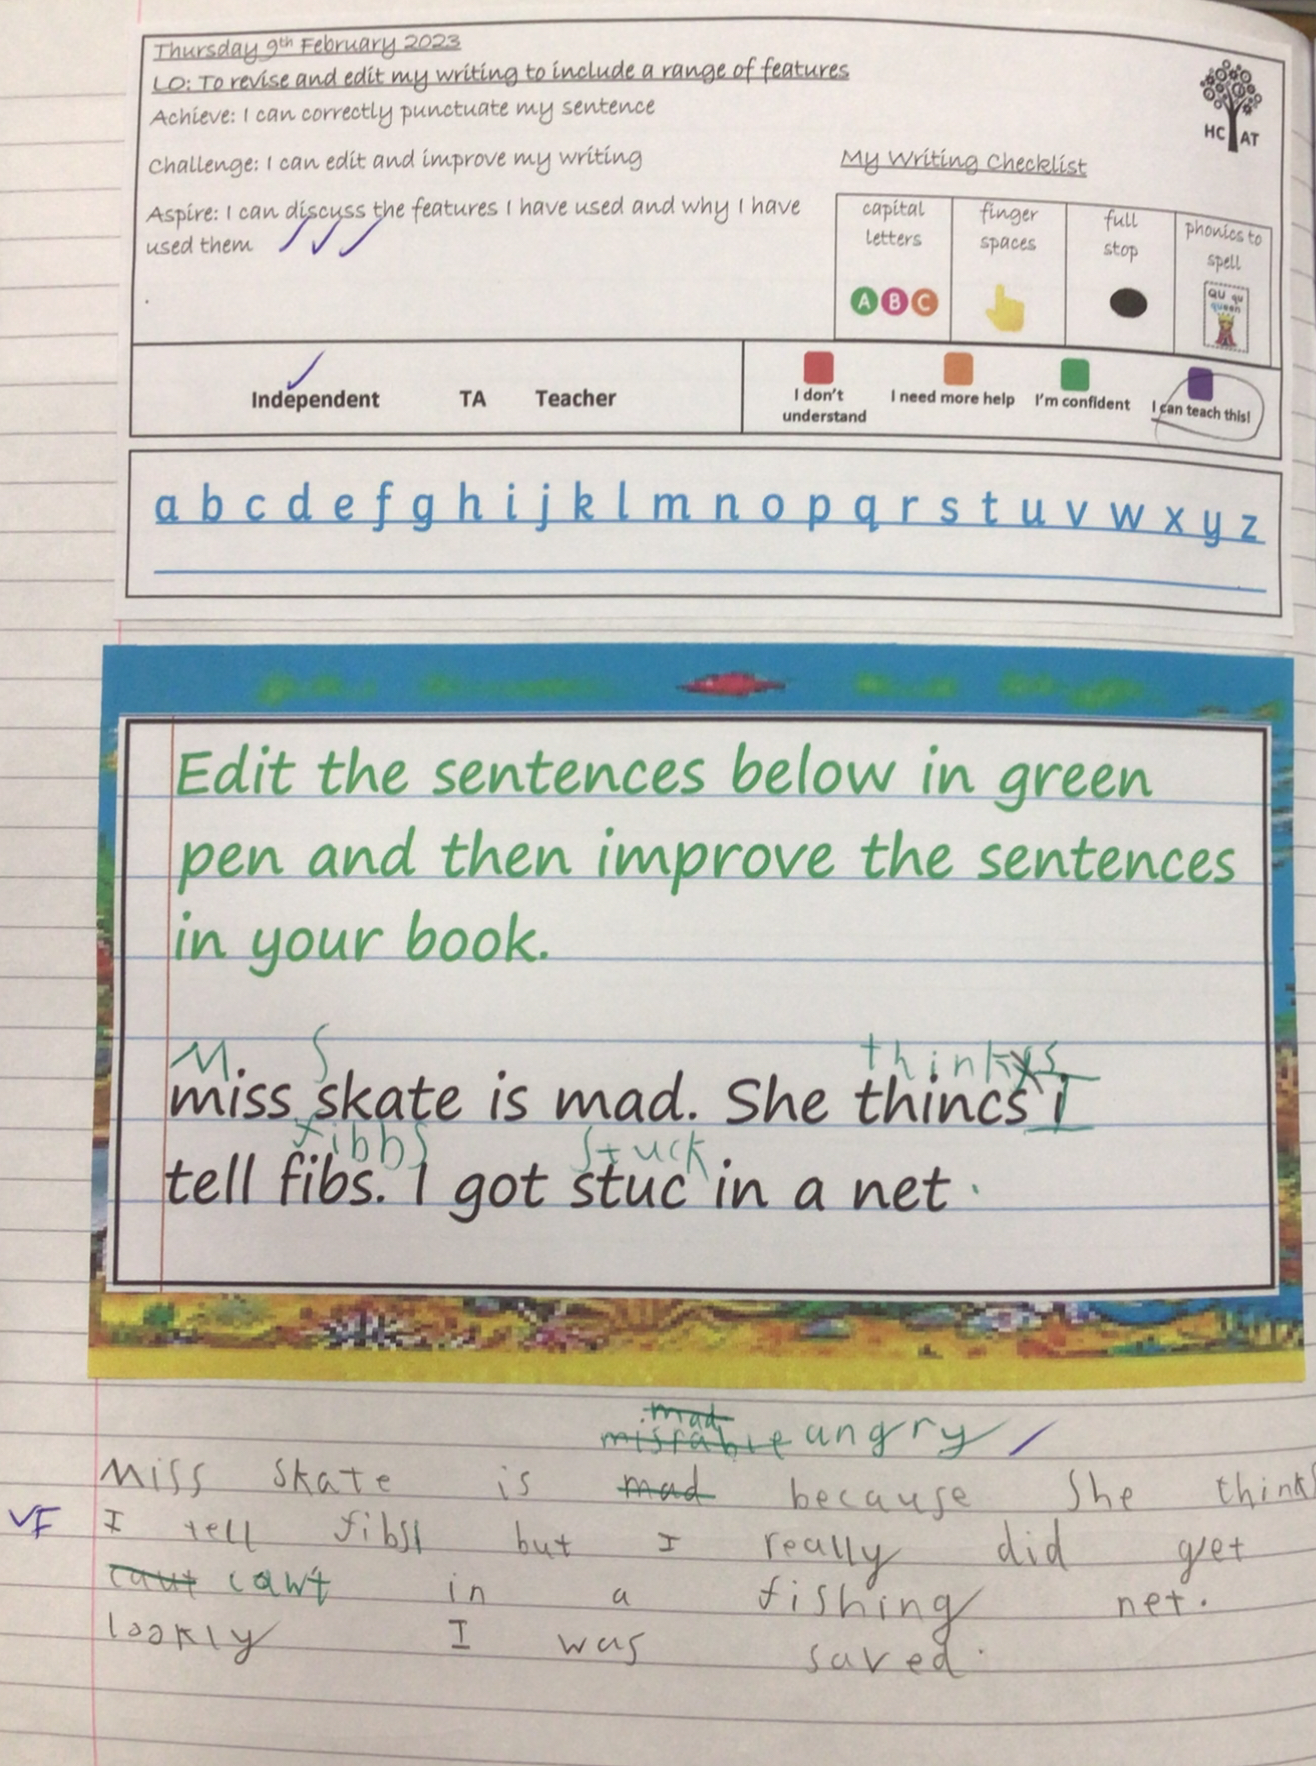 Thursday 9th February 2023
LO: To revise and edit my writing to include a range of features
Achieve: I can correctly punctuate my sentence
Challenge: I can edit and improve my writing
Aspire: I can discuss the features I have used and why I have
used them
HC AT
My Writing Checklist
capital letters
finger spaces
full stop
phonics to spell
A B C
QU qu
queen
Independent TA Teacher
I don't understand
I need more help
I'm confident
I can teach this!
a b c d e f g h i j k l m n o p q r s t u v w x y z
Edit the sentences below in green
pen and then improve the sentences
in your book.
M S thinks
miss skate is mad. She thincs i
I
fibbs stuck
tell fibs. I got stuc in a net .
mad
misrable angry
Miss Skate is mad because She think
VF I tell fibs but I really did get
caut cawt in a fishing net.
lookly I was saved.